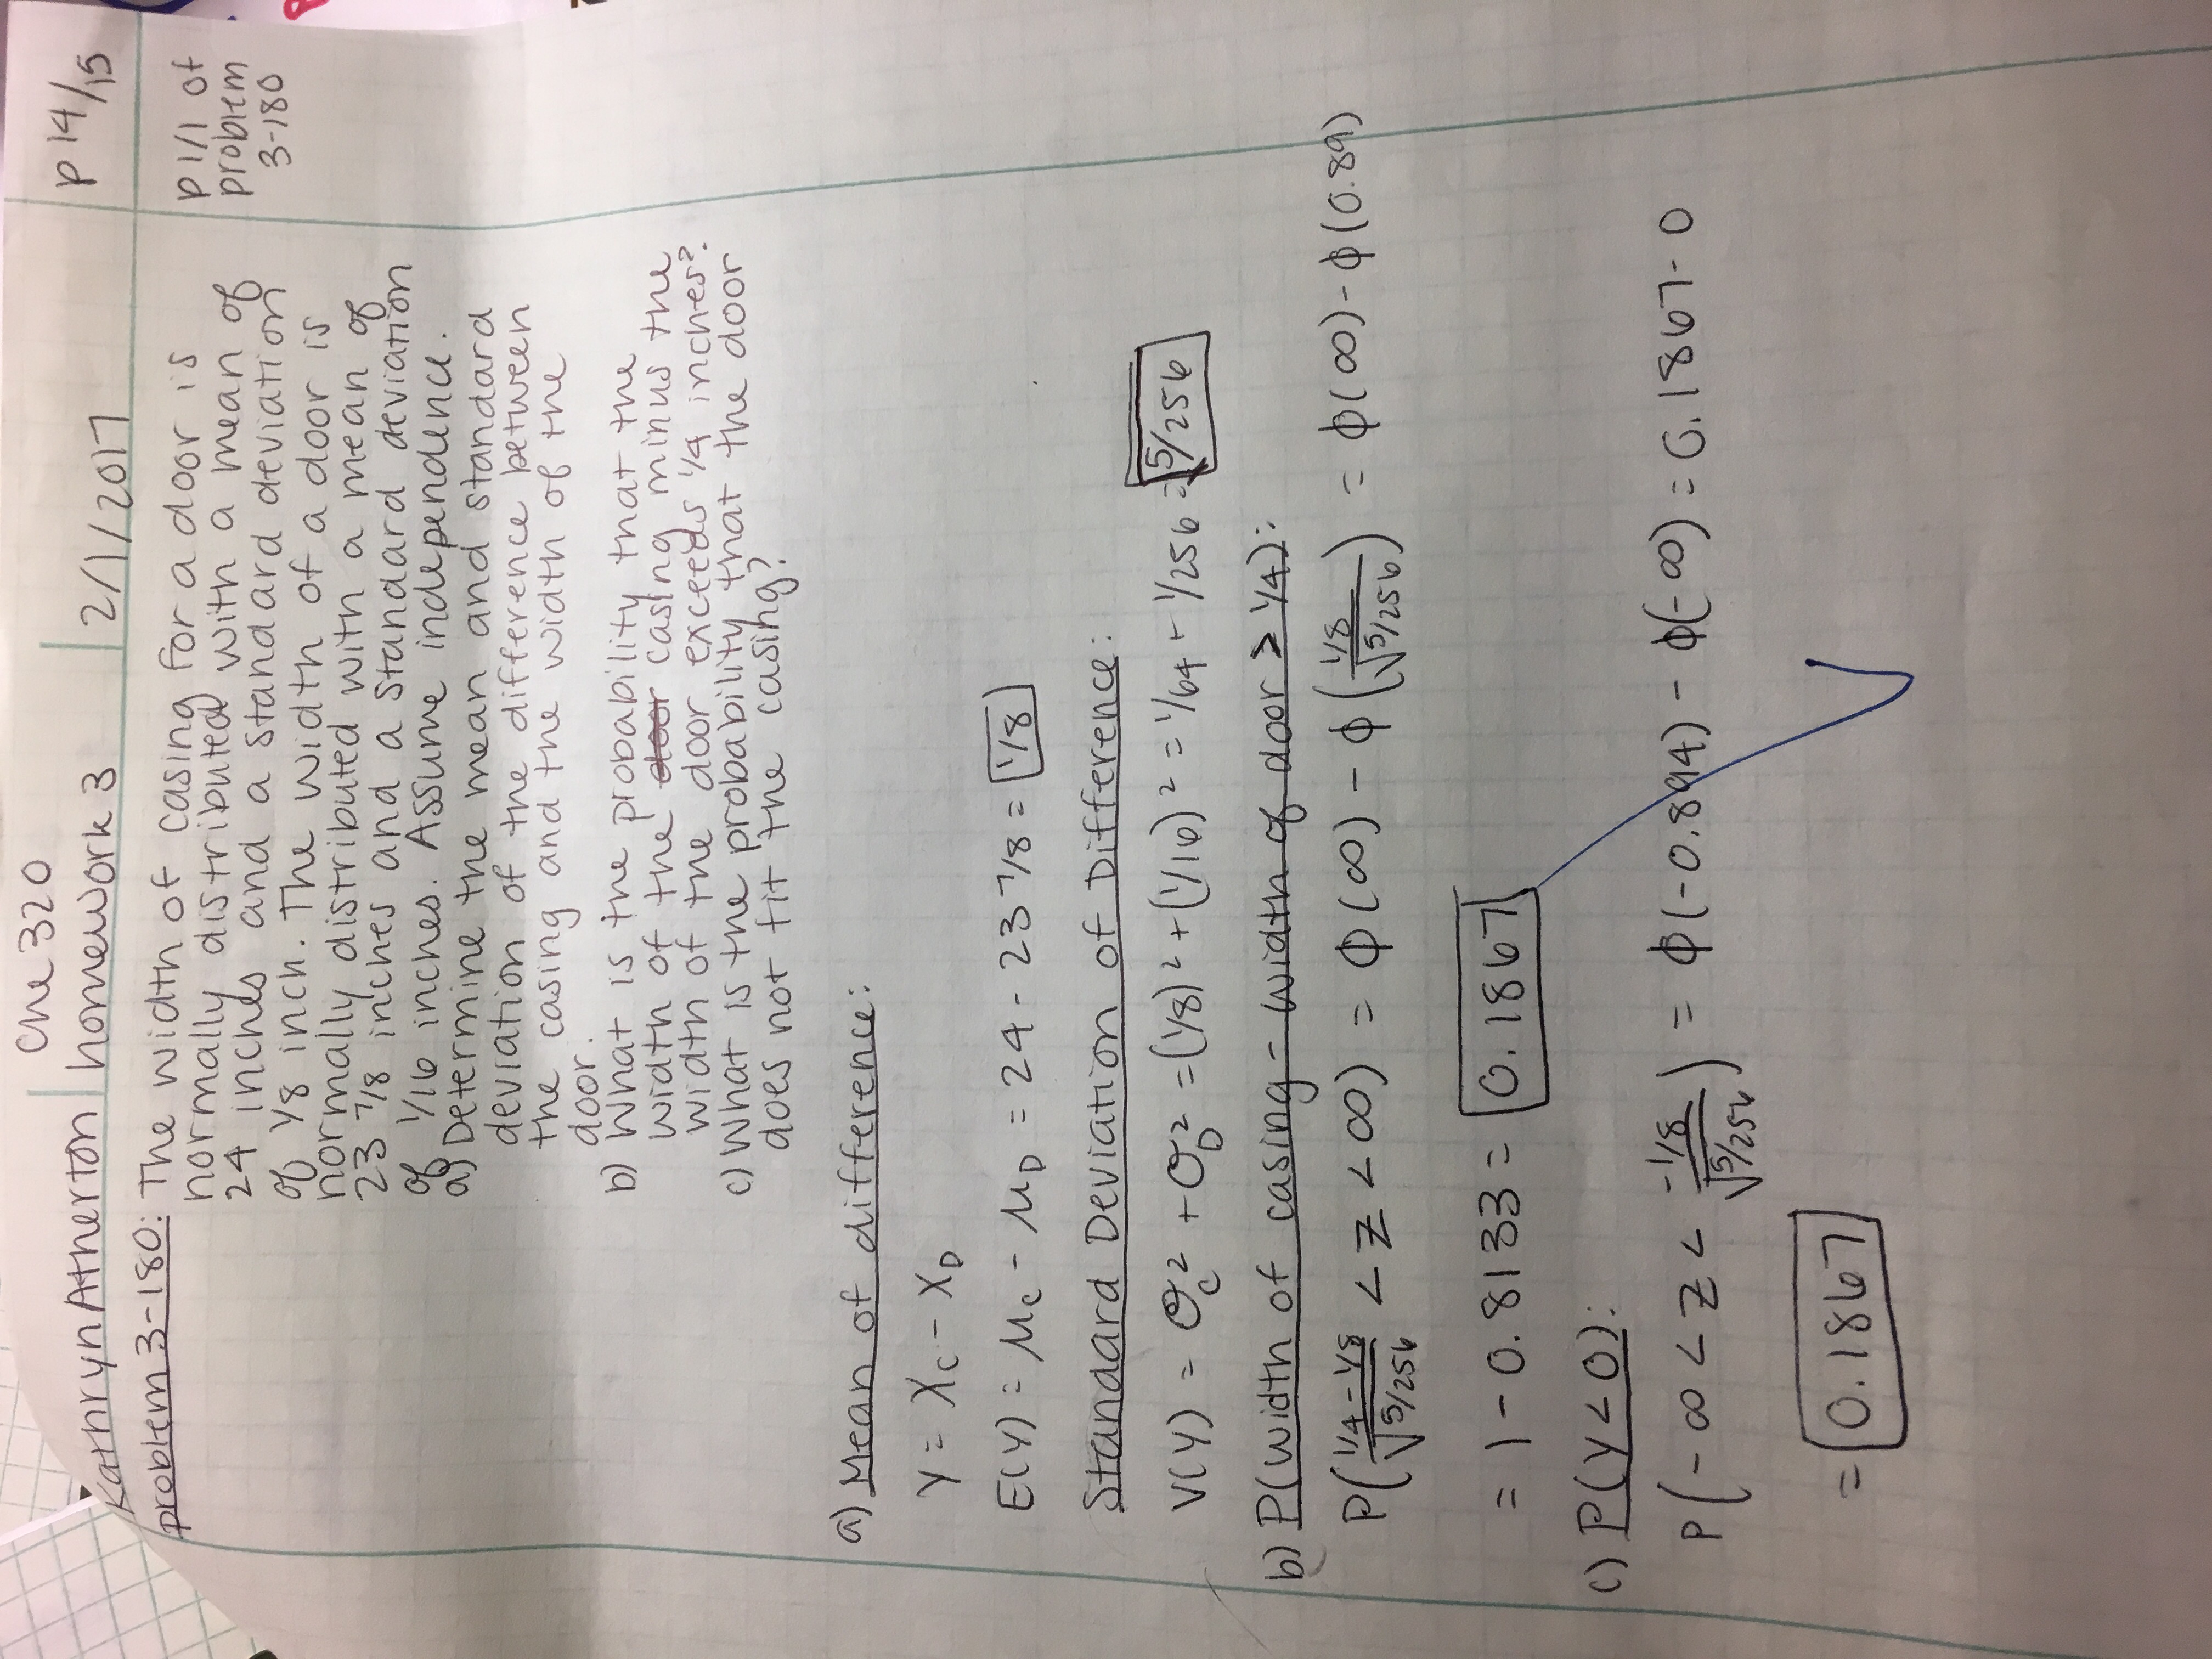 Kathryn Atherton
Che 320
homework 3
2/1/2017
p 14/15
problem 3-180: The width of casing for a door is
normally distributed with a mean of
24 inches and a standard deviation
of 1/8 inch. The width of a door is
normally distributed with a mean of
23 7/8 inches and a standard deviation
of 1/16 inches. Assume independence.
a) Determine the mean and standard
deviation of the difference between
the casing and the width of the
door.
b) What is the probability that the
width of the door casing minus the
width of the door exceeds 1/4 inches?
c) What is the probability that the door
does not fit the casing?
p 1/1 of
problem
3-180
a) Mean of difference:
Y = XC - XD
E(Y) = μC - μD = 24 - 23 7/8 = 1/8
Standard Deviation of Difference:
V(Y) = σC² + σD² = (1/8)² + (1/16)² = 1/64 + 1/256 = √5/256
b) P(width of casing - width of door > 1/4):
P((1/4 - 1/8)/√5/256 < Z < ∞) = ϕ(∞) - ϕ((1/8)/√5/256) = ϕ(∞) - ϕ(0.89)
= 1 - 0.8133 = 0.1867
c) P(Y < 0):
P(-∞ < Z < (-1/8)/√5/256) = ϕ(-0.894) - ϕ(-∞) = 0.1867 - 0
= 0.1867